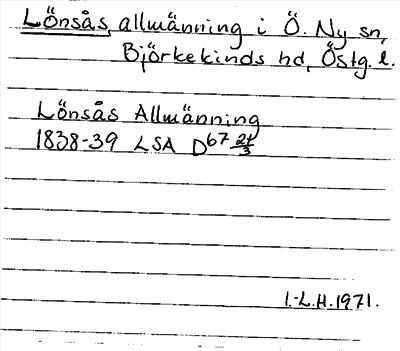 Lönsås, allmänning i Ö. Ny sn,
Björkekinds hd, Östg. l.
Lönsås Allmänning
1838-39 LSA D67 27/3
I.-L.H. 1971.